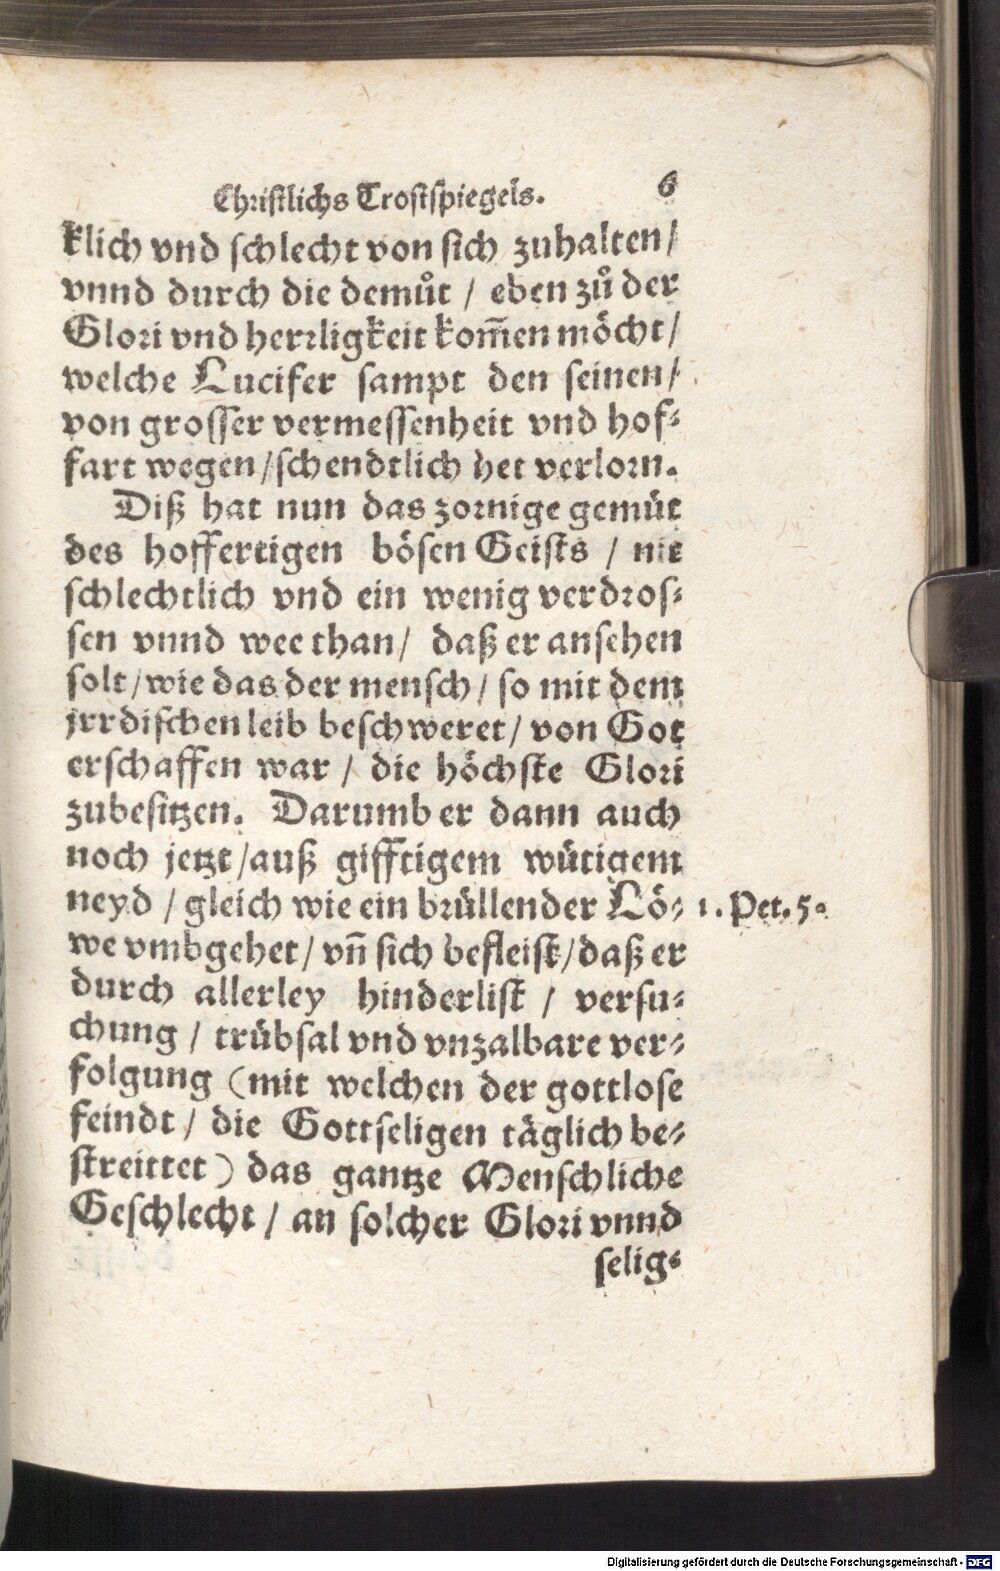 Christlichs Trostspiegels. 6
klich vnd schlecht von sich zuhalten/
vnnd durch die demůt / eben zů der
Glori vnd herrligkeit kom̄en möcht/
welche Lucifer sampt den seinen/
von grosser vermessenheit vnd hof-
fart wegen/schendtlich het verlorn.
Diß hat nun das zornige gemüt
des hoffertigen bösen Geists / nit
schlechtlich vnd ein wenig verdros-
sen vnnd wee than/ daß er ansehen
solt/wie das der mensch/ so mit dem
jrrdischen leib beschweret/ von Got
erschaffen war / die höchste Glori
zubesitzen. Darumb er dann auch
noch jetzt/auß gifftigem wütigem
neyd / gleich wie ein brüllender Lö- 1. Pet. 5.
we vmbgehet/ vn̄ sich befleist/daß er
durch allerley hinderlist / versu-
chung / trübsal vnd vnzalbare ver-
folgung (mit welchen der gottlose
feindt / die Gottseligen täglich be-
streittet) das gantze Menschliche
Geschlecht / an solcher Glori vnnd
selig-
Digitalisierung gefördert durch die Deutsche Forschungsgemeinschaft - DFG